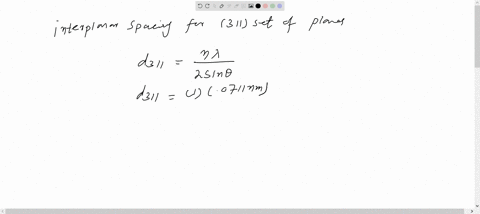 interplanar spacing for (311) set of planes
d311 = nλ / 2sinθ
d311 = (1) (.0711nm)